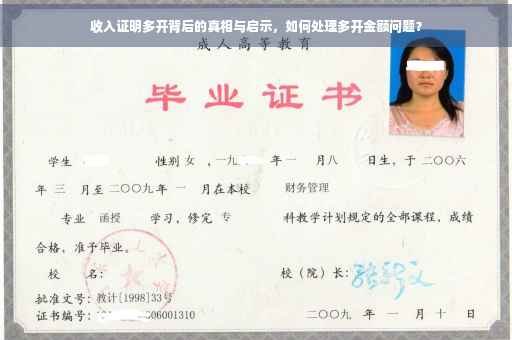 收入证明多开背后的真相与启示，如何处理多开金额问题？
成人高等教育
毕业证书
学生 性别 女 ，一九 年 一 月八 日生，于 二〇〇六
年 三 月至 二〇〇九 年 一 月在本校 财务管理
专业 函授 学习，修完 专 科教学计划规定的全部课程，成绩
合格，准予毕业。
校 名： 校（院）长：
批准文号：教计[1998]33号
证书编号： 06001310 二〇〇九 年 一 月 十 日